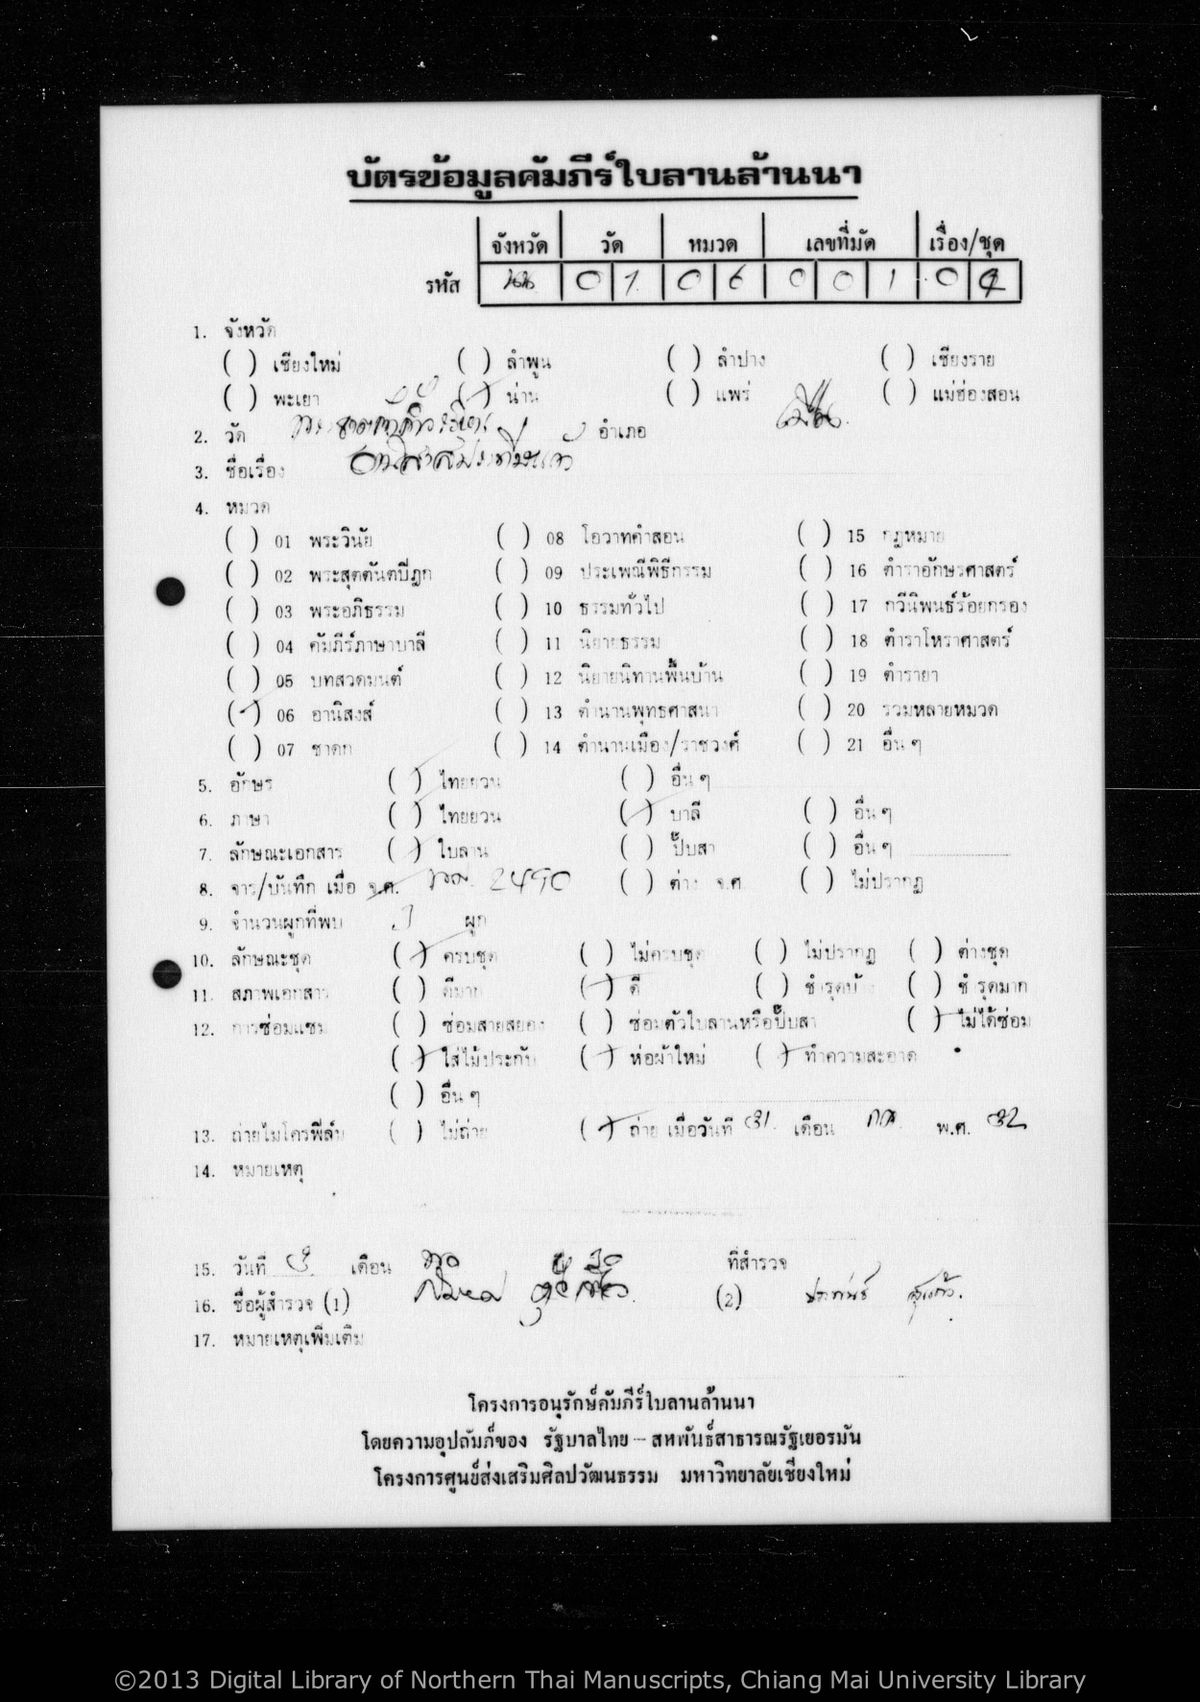 บัตรข้อมูลคัมภีร์ใบลานล้านนา
จังหวัด วัด หมวด เลขที่มัด เรื่อง/ชุด
รหัส นน 01 06 001 04
1. จังหวัด
( ) เชียงใหม่ ( ) ลำพูน ( ) ลำปาง ( ) เชียงราย
( ) พะเยา (/) น่าน ( ) แพร่ ( ) แม่ฮ่องสอน
2. วัด อำเภอ เมือง
3. ชื่อเรื่อง
4. หมวด
( ) 01 พระวินัย ( ) 08 โอวาทคำสอน ( ) 15 กฎหมาย
( ) 02 พระสุตตันตปิฎก ( ) 09 ประเพณีพิธีกรรม ( ) 16 ตำราอักษรศาสตร์
( ) 03 พระอภิธรรม ( ) 10 ธรรมทั่วไป ( ) 17 กวีนิพนธ์ร้อยกรอง
( ) 04 คัมภีร์ภาษาบาลี ( ) 11 นิยายธรรม ( ) 18 ตำราโหราศาสตร์
( ) 05 บทสวดมนต์ ( ) 12 นิยายนิทานพื้นบ้าน ( ) 19 ตำรายา
(/) 06 อานิสงส์ ( ) 13 ตำนานพุทธศาสนา ( ) 20 รวมหลายหมวด
( ) 07 ชาดก ( ) 14 ตำนานเมือง/ราชวงศ์ ( ) 21 อื่น ๆ
5. อักษร (/) ไทยยวน ( ) อื่น ๆ
6. ภาษา (/) ไทยยวน (/) บาลี ( ) อื่น ๆ
7. ลักษณะเอกสาร (/) ใบลาน ( ) ปั๊บสา ( ) อื่น ๆ
8. จาร/บันทึก เมื่อ จ.ศ. พ.ศ. 2490 ( ) ต่าง จ.ศ. ( ) ไม่ปรากฏ
9. จำนวนผูกที่พบ 1 ผูก
10. ลักษณะชุด (/) ครบชุด ( ) ไม่ครบชุด ( ) ไม่ปรากฏ ( ) ต่างชุด
11. สภาพเอกสาร ( ) ดีมาก (/) ดี ( ) ชำรุดบ้าง ( ) ชำรุดมาก
12. การซ่อมแซม ( ) ซ่อมสายสยอง ( ) ซ่อมตัวใบลานหรือปั๊บสา (/) ไม่ได้ซ่อม
(/) ใส่ไม้ประกับ (/) ห่อผ้าใหม่ (/) ทำความสะอาด
( ) อื่น ๆ
13. ถ่ายไมโครฟิล์ม ( ) ไม่ถ่าย (/) ถ่าย เมื่อวันที่ 31 เดือน กค. พ.ศ. 32
14. หมายเหตุ
15. วันที่ 3 เดือน พย 30 ที่สำรวจ
16. ชื่อผู้สำรวจ (1) (2)
17. หมายเหตุเพิ่มเติม
โครงการอนุรักษ์คัมภีร์ใบลานล้านนา
โดยความอุปถัมภ์ของ รัฐบาลไทย - สหพันธ์สาธารณรัฐเยอรมัน
โครงการศูนย์ส่งเสริมศิลปวัฒนธรรม มหาวิทยาลัยเชียงใหม่
©2013 Digital Library of Northern Thai Manuscripts, Chiang Mai University Library